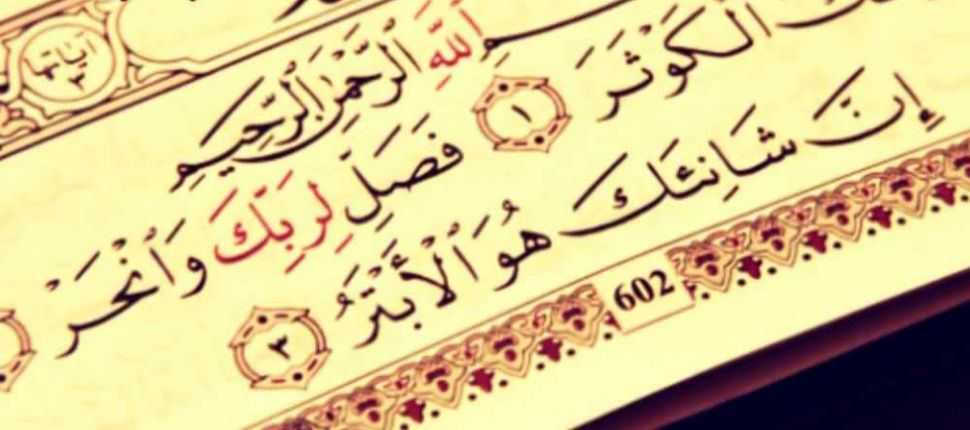 آياتها
٣
للَّهِ ٱلرَّحْمَٰنِ ٱلرَّحِيمِ
ٱلْكَوْثَرَ ١ فَصَلِّ لِرَبِّكَ وَٱنْحَرْ
إِنَّ شَانِئَكَ هُوَ ٱلْأَبْتَرُ ٣
602